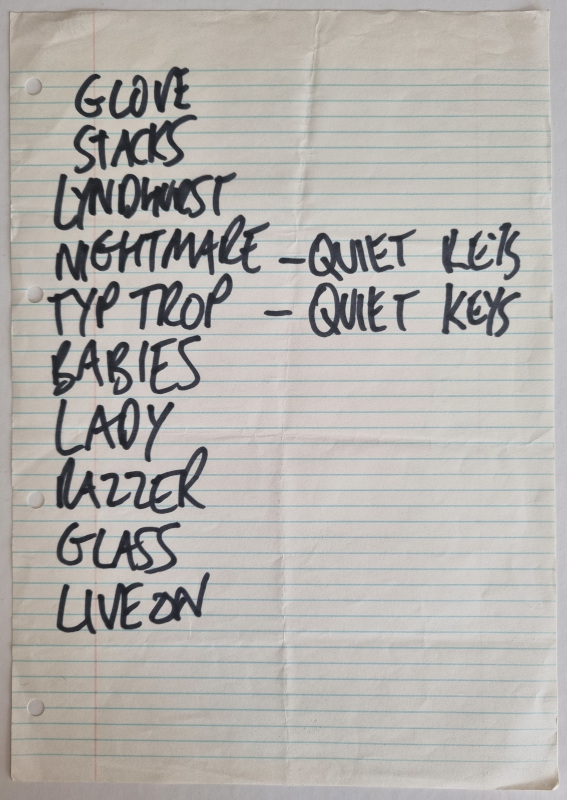 GLOVE
STACKS
LYNDHURST
NIGHTMARE - QUIET KEYS
TYP TROP - QUIET KEYS
BABIES
LADY
RAZZER
GLASS
LIVE ON